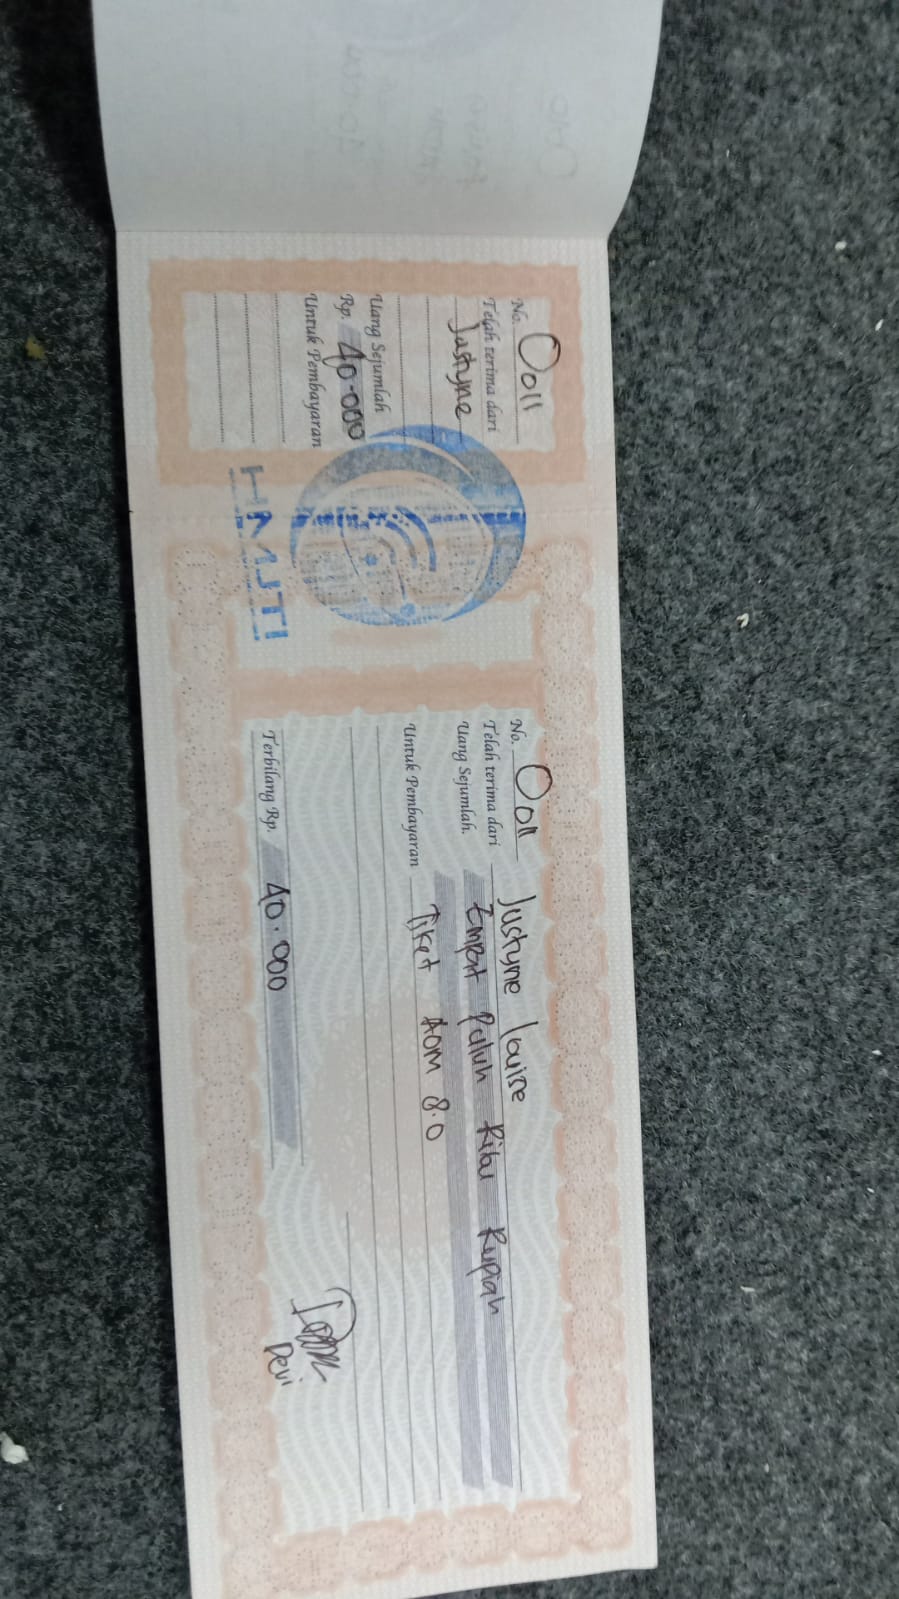 No. 0011
Telah terima dari
Justyne
Uang Sejumlah
Rp. 40.000
Untuk Pembayaran
HMJTI
No. 0011
Telah terima dari Justyne Louise
Uang Sejumlah. Empat Puluh Ribu Rupiah
Untuk Pembayaran Tiket AOM 8.0
Terbilang Rp. 40.000
Devi